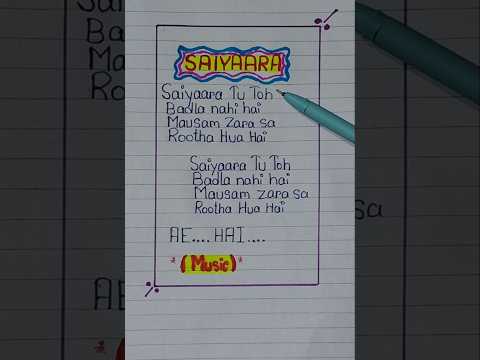 SAIYAARA
Saiyaara Tu Toh
Badla nahi hai
Mausam Zara sa
Rootha Hua Hai
Saiyaara Tu Toh
Badla nahi hai
Mausam Zara sa
Rootha Hua Hai
AE.... HAI....
*(Music)*